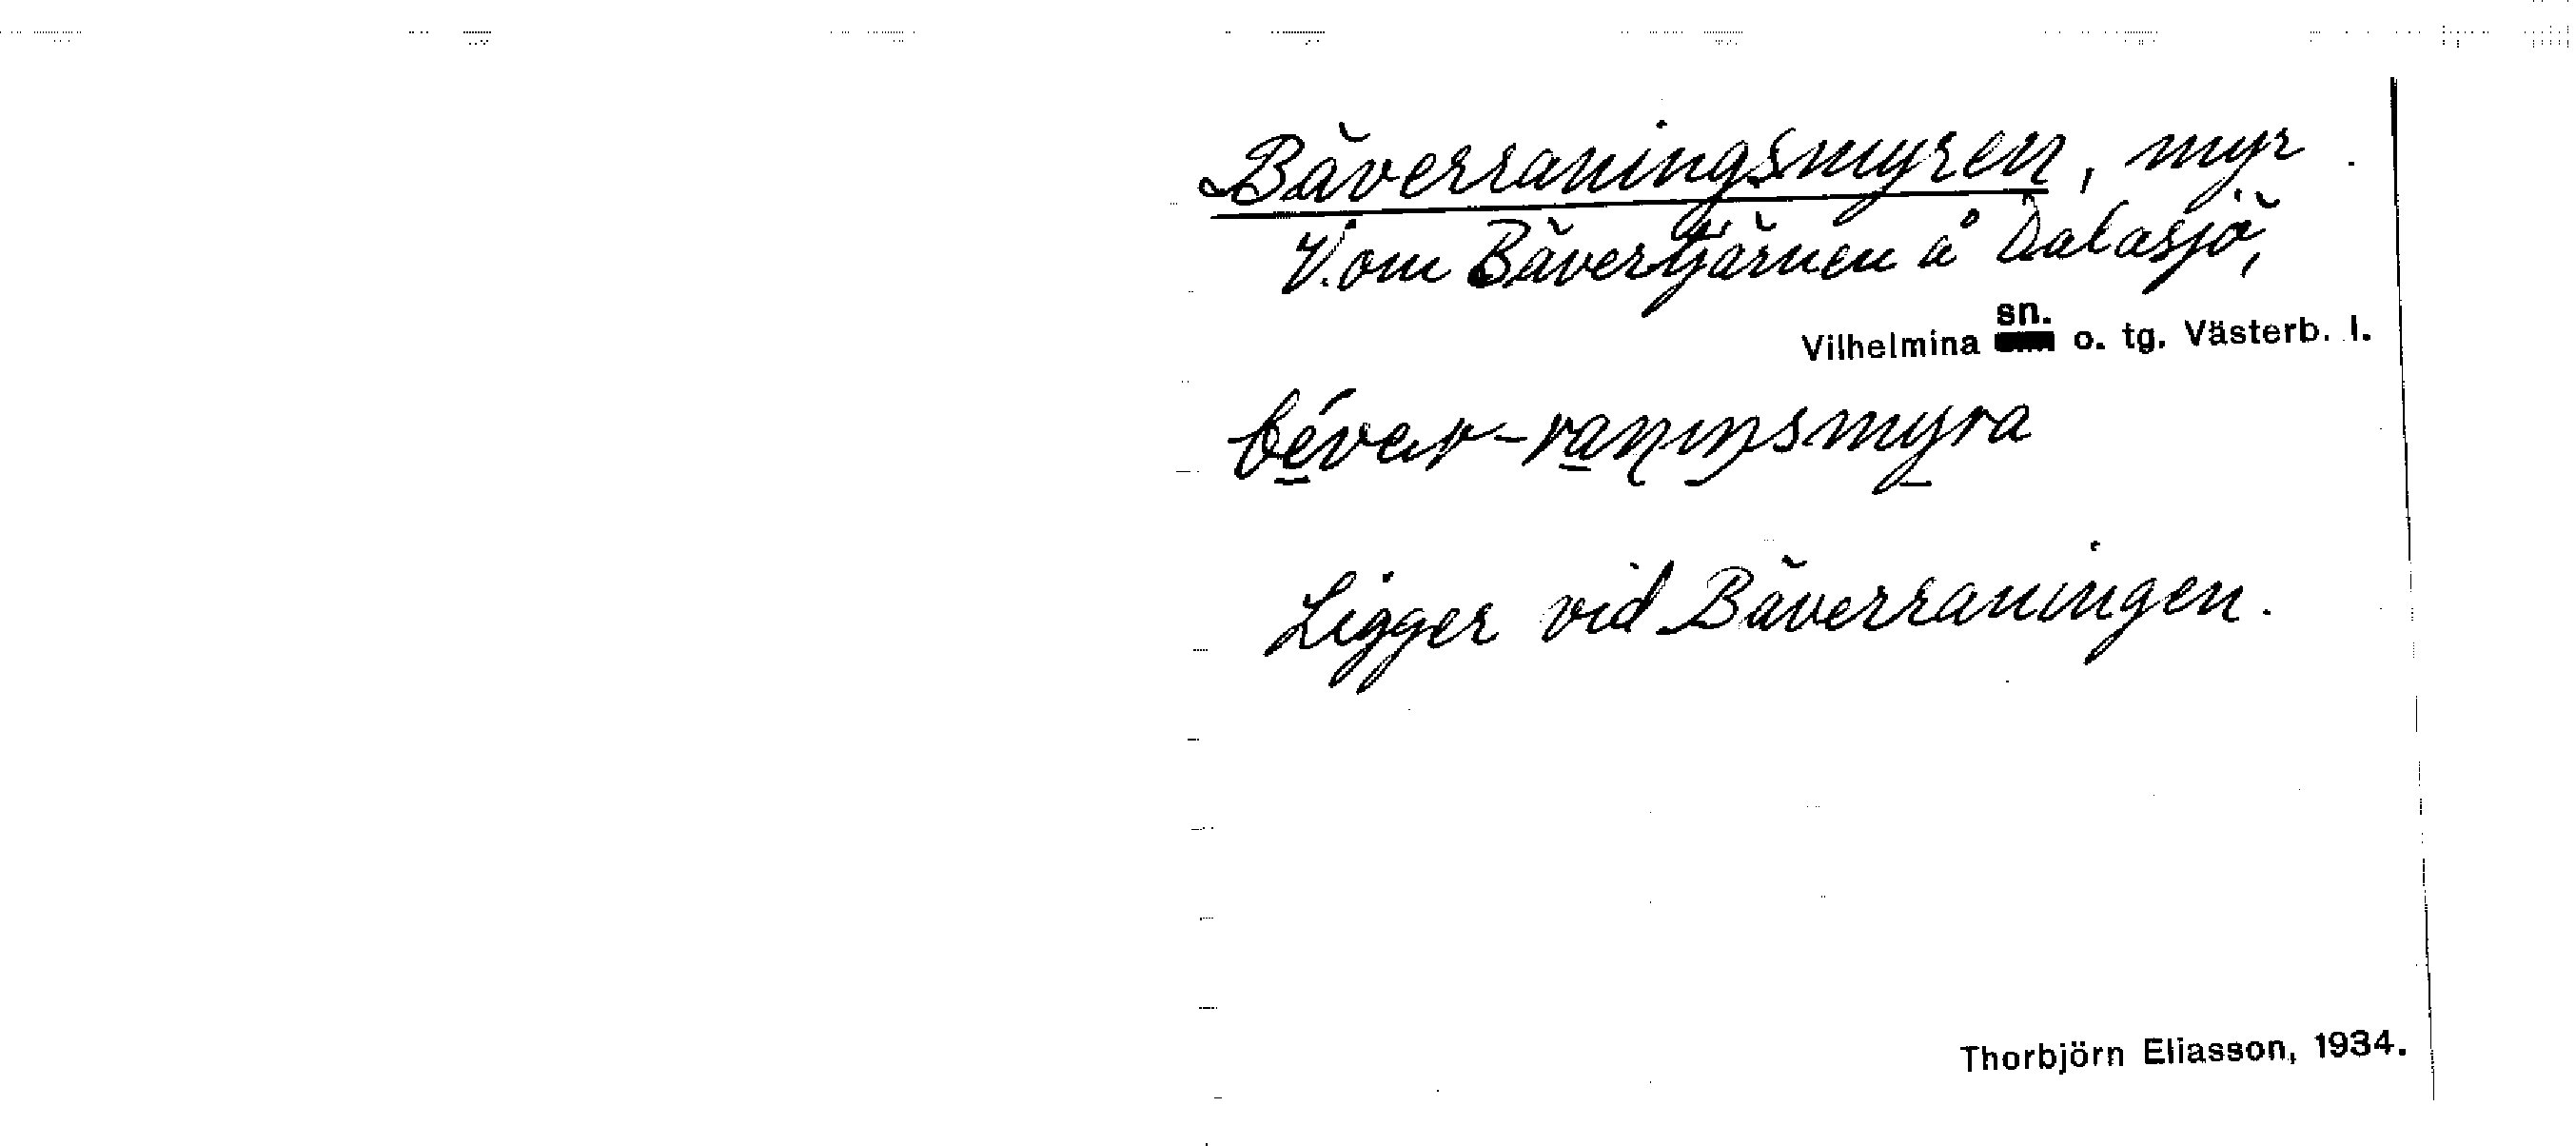 Bäverraningsmyren, myr
V. om Bävertjärnen å Dalasjö,
Vilhelmina sn. o. tg. Västerb. l.
béver-raniŋsmyra
Ligger vid Bäverraningen.
Thorbjörn Eliasson, 1934.